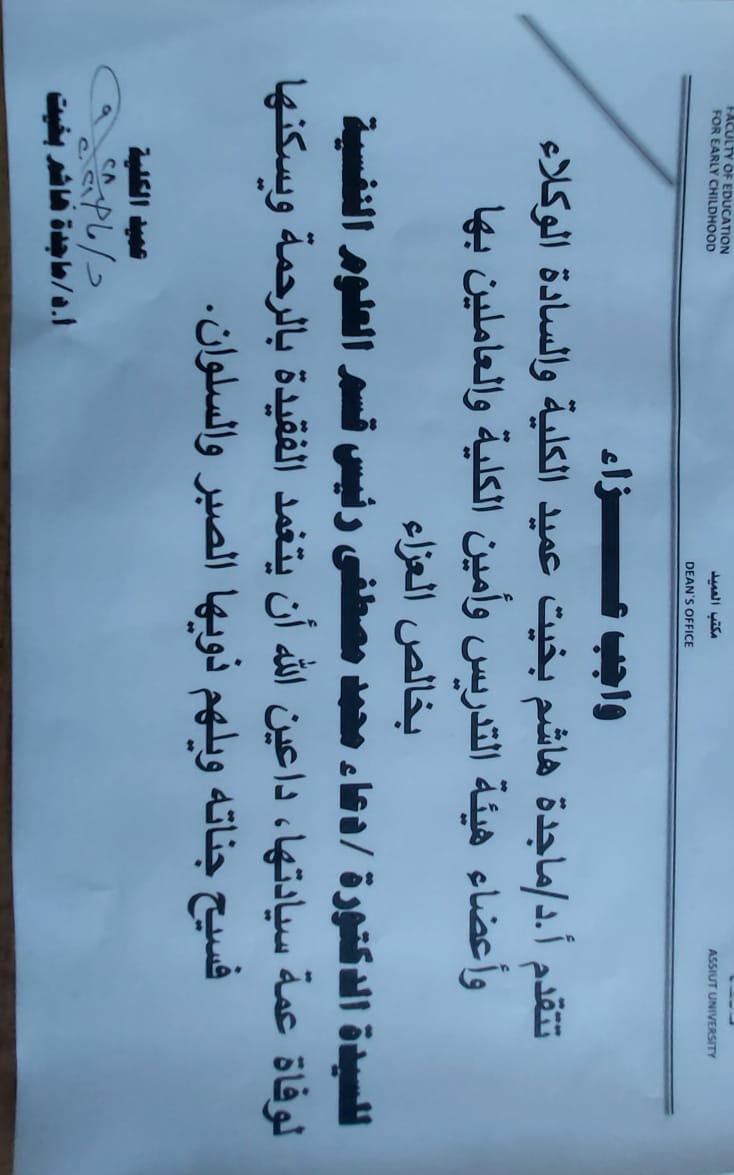 FACULTY OF EDUCATION
FOR EARLY CHILDHOOD
مكتب العميد
DEAN'S OFFICE
ASSIUT UNIVERSITY
واجب عـــــزاء
تتقدم أ.د/ماجدة هاشم بخيت عميد الكلية والسادة الوكلاء
وأعضاء هيئة التدريس وأمين الكلية والعاملين بها
بخالص العزاء
للسيدة الدكتورة /دعاء محمد مصطفى رئيس قسم العلوم النفسية
لوفاة عمة سيادتها، داعين الله أن يتغمد الفقيدة بالرحمة ويسكنها
فسيح جناته ويلهم ذويها الصبر والسلوان.
عميد الكلية
أ.د/ماجدة هاشم بخيت